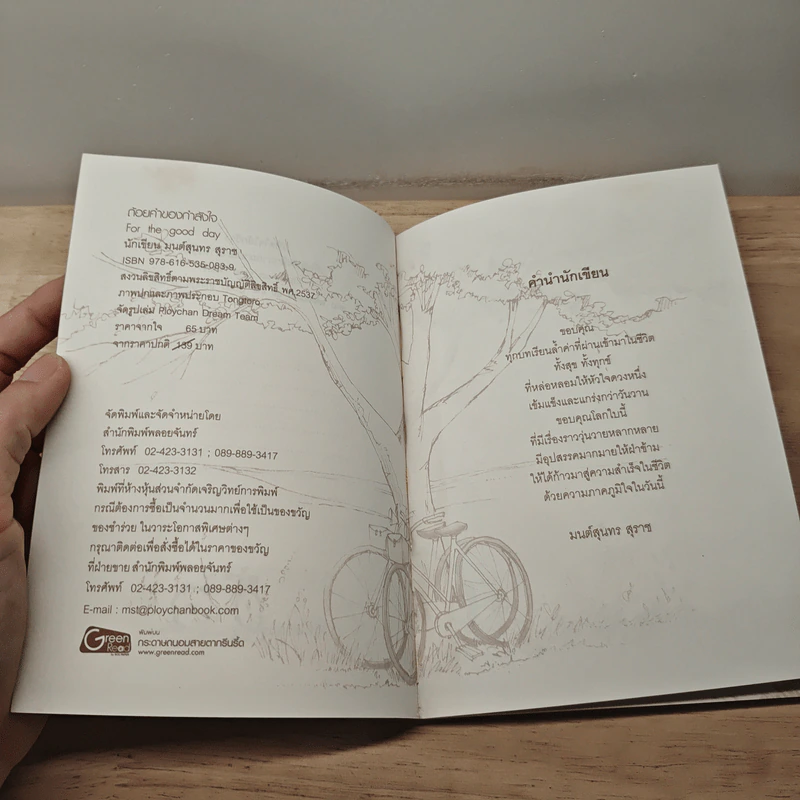 ถ้อยคำของกำลังใจ
For the good day
นักเขียน มนต์สุนทร สุราช
ISBN 978-616-535-083-9
สงวนลิขสิทธิ์ตามพระราชบัญญัติลิขสิทธิ์ พศ.2537
ภาพปกและภาพประกอบ Tongtoro
จัดรูปเล่ม Ploychan Dream Team
ราคาจากใจ 65 บาท
จากราคาปกติ 139 บาท
จัดพิมพ์และจัดจำหน่ายโดย
สำนักพิมพ์พลอยจันทร์
โทรศัพท์ 02-423-3131 ; 089-889-3417
โทรสาร 02-423-3132
พิมพ์ที่ห้างหุ้นส่วนจำกัดเจริญวิทย์การพิมพ์
กรณีต้องการซื้อเป็นจำนวนมากเพื่อใช้เป็นของขวัญ
ของชำร่วย ในวาระโอกาสพิเศษต่างๆ
กรุณาติดต่อเพื่อสั่งซื้อได้ในราคาของขวัญ
ที่ฝ่ายขาย สำนักพิมพ์พลอยจันทร์
โทรศัพท์ 02-423-3131 ; 089-889-3417
E-mail : mst@ploychanbook.com
Green Read
พิมพ์บน
กระดาษถนอมสายตากรีนรี้ด
www.greenread.com
คำนำนักเขียน
ขอบคุณ
ทุกบทเรียนล้ำค่าที่ผ่านเข้ามาในชีวิต
ทั้งสุข ทั้งทุกข์
ที่หล่อหลอมให้หัวใจดวงหนึ่ง
เข้มแข็งและแกร่งกว่าวันวาน
ขอบคุณโลกใบนี้
ที่มีเรื่องราววุ่นวายหลากหลาย
มีอุปสรรคมากมายให้ฝ่าข้าม
ให้ได้ก้าวมาสู่ความสำเร็จในชีวิต
ด้วยความภาคภูมิใจในวันนี้
มนต์สุนทร สุราช